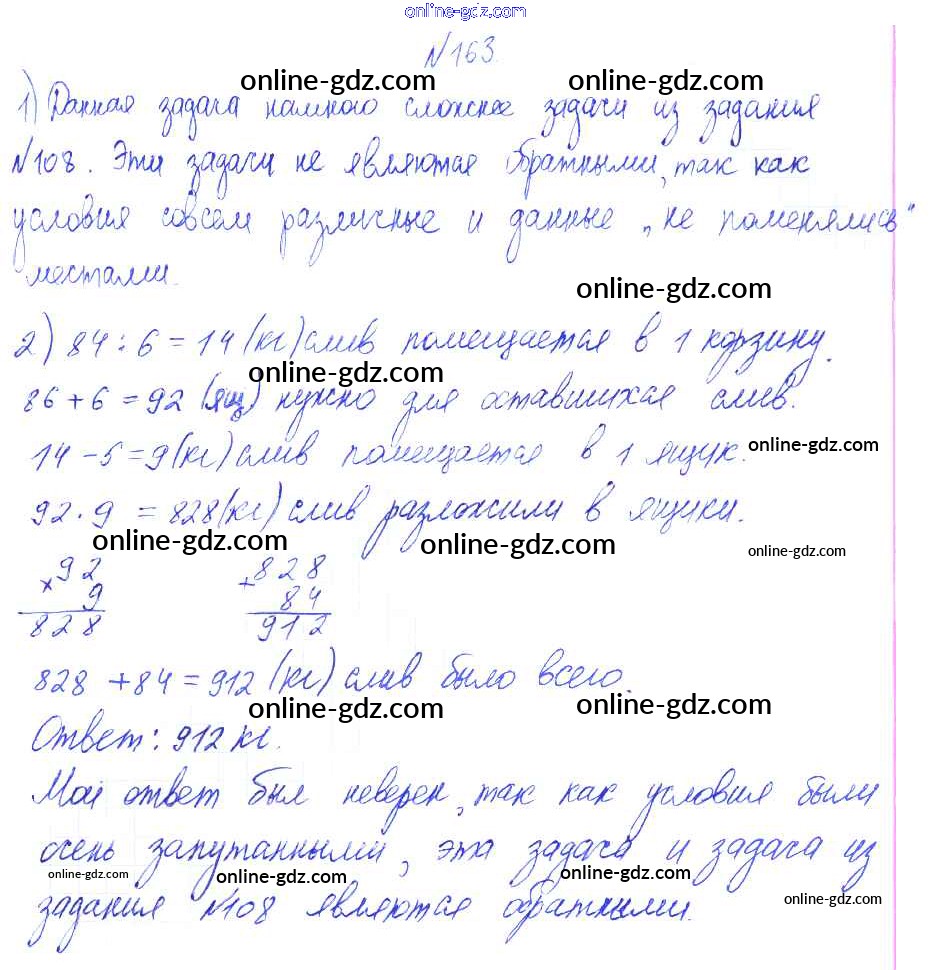 online-gdz.com
№163.
online-gdz.com online-gdz.com
1) Данная задача намного сложнее задачи из задания
№108. Эти задачи не являются обратными, так как
условия совсем различные и данные „не поменялись"
местами.
online-gdz.com
2) 84 : 6 = 14 (кг) слив помещается в 1 корзину.
online-gdz.com
86 + 6 = 92 (ящ) нужно для оставшихся слив.
14 - 5 = 9 (кг) слив помещается в 1 ящик.
online-gdz.com
92 · 9 = 828 (кг) слив разложили в ящики.
online-gdz.com online-gdz.com online-gdz.com
× 92 + 828
9 84
828 912
828 + 84 = 912 (кг) слив было всего.
online-gdz.com online-gdz.com
Ответ: 912 кг.
Мой ответ был неверен, так как условия были
очень запутанными, эта задача и задача из
online-gdz.com online-gdz.com online-gdz.com
задания №108 являются обратными.
online-gdz.com